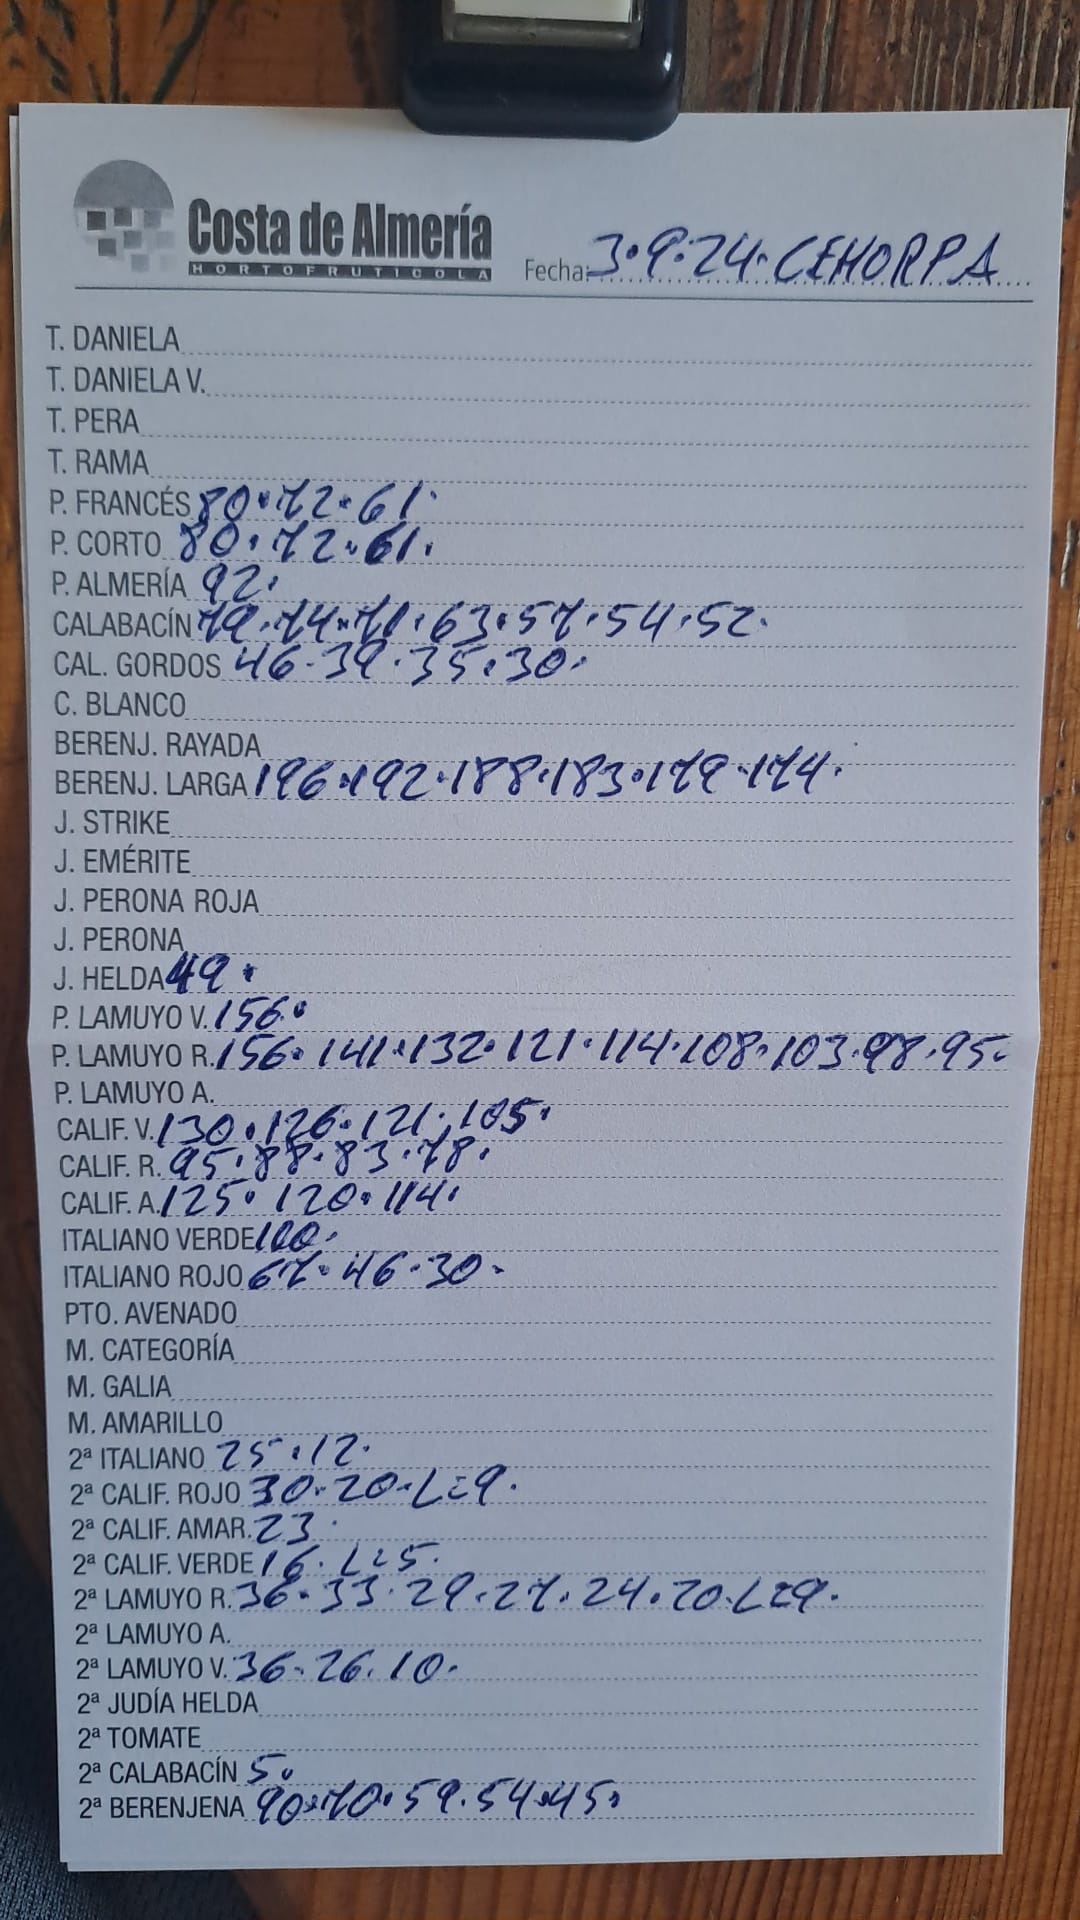 Costa de Almería
HORTOFRUTICOLA
Fecha: 3.9.24. CEHORPA
T. DANIELA
T. DANIELA V.
T. PERA
T. RAMA
P. FRANCÉS 80.72.61.
P. CORTO 80.72.61.
P. ALMERÍA 92.
CALABACÍN 79.74.71.63.57.54.52.
CAL. GORDOS 46.39.35.30.
C. BLANCO
BERENJ. RAYADA
BERENJ. LARGA 196.192.188.183.179.174.
J. STRIKE
J. EMÉRITE
J. PERONA ROJA
J. PERONA
J. HELDA 49.
P. LAMUYO V. 156.
P. LAMUYO R. 156.141.132.121.114.108.103.98.95.
P. LAMUYO A.
CALIF. V. 130.126.121.105.
CALIF. R. 95.88.83.78.
CALIF. A. 125.120.114.
ITALIANO VERDE 100.
ITALIANO ROJO 67.46.30.
PTO. AVENADO
M. CATEGORÍA
M. GALIA
M. AMARILLO
2ª ITALIANO 25.12.
2ª CALIF. ROJO 30.20.L=9.
2ª CALIF. AMAR. 23.
2ª CALIF. VERDE 16.L=5.
2ª LAMUYO R. 36.33.29.27.24.20.L=9.
2ª LAMUYO A.
2ª LAMUYO V. 36.26.10.
2ª JUDÍA HELDA
2ª TOMATE
2ª CALABACÍN 5.
2ª BERENJENA 90.70.59.54.45.